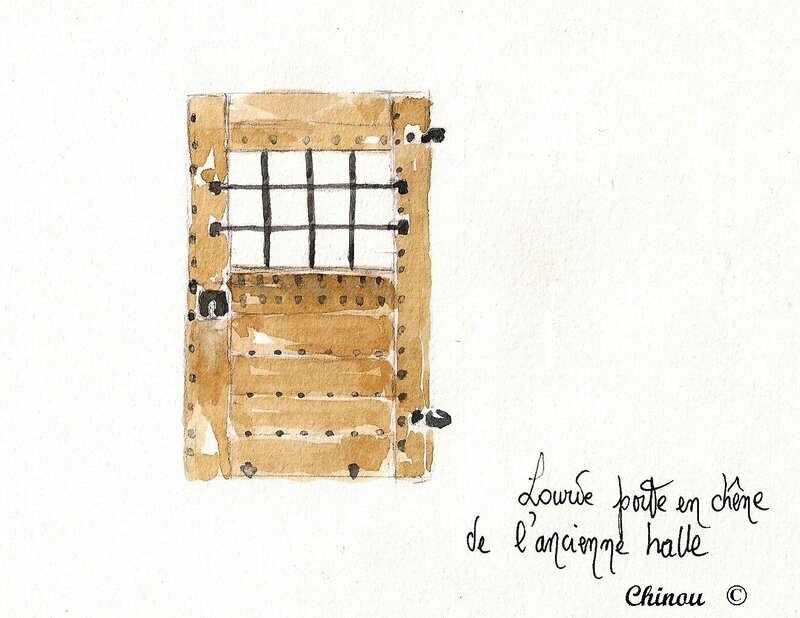 Lourde porte en chêne
de l'ancienne halle
Chinou ©